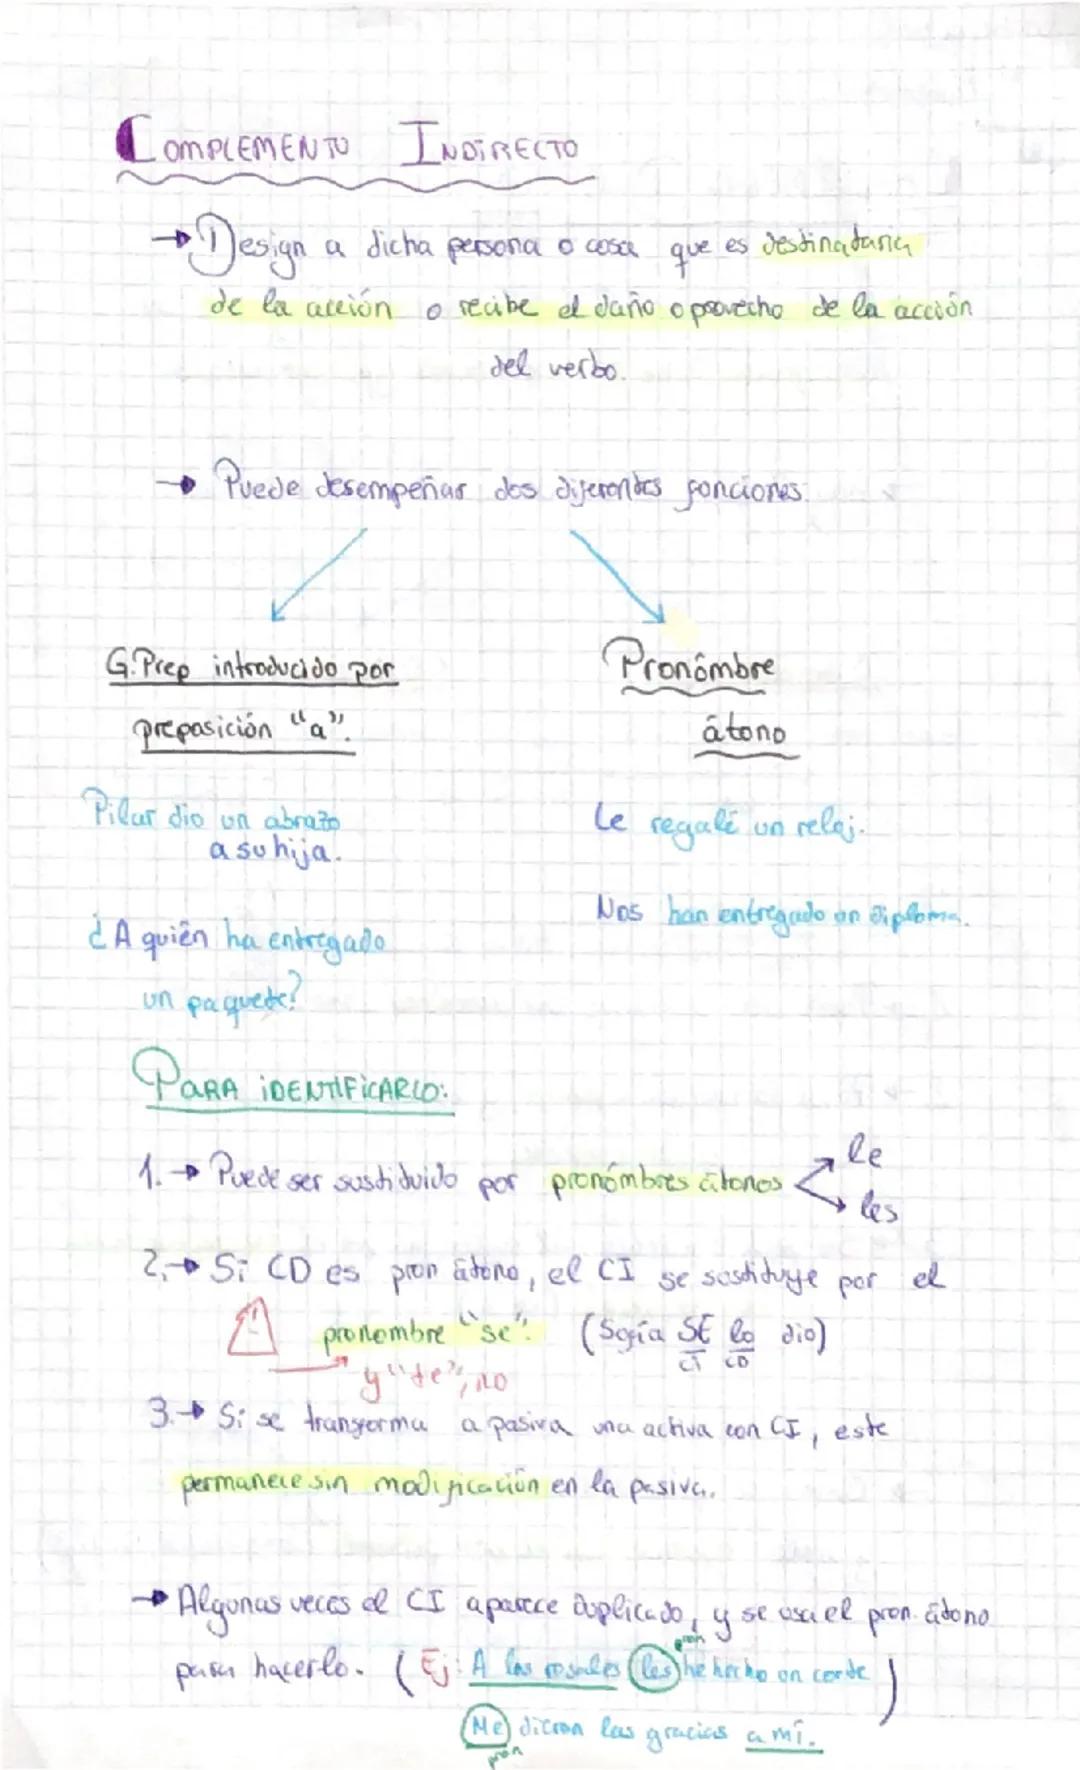 COMPLEMENTO INDIRECTO
→ Design a dicha persona o cosa que es destinataria
de la acción o recibe el daño o provecho de la acción
del verbo.
→ Puede desempeñar dos diferentes funciones:
G.Prep introducido por
preposición "a".
Pilar dio un abrazo
a su hija.
¿A quién ha entregado
un paquete?
Pronómbre
átono
Le regalé un reloj.
Nos han entregado un diploma.
PARA IDENTIFICARLO:
1. → Puede ser sustituido por pronómbres átonos le
les
2. → Si CD es pron átono, el CI se sustituye por el
! pronombre "se". (Sofía SE lo dio)
CI CD
y "te", no
3. → Si se transforma a pasiva una activa con CI, este
permanece sin modificación en la pasiva.
→ Algunas veces el CI aparece duplicado, y se usa el pron. átono
pron
para hacerlo. (Ej: A los rosales les he hecho un corte)
Me dieron las gracias a mí.
pron